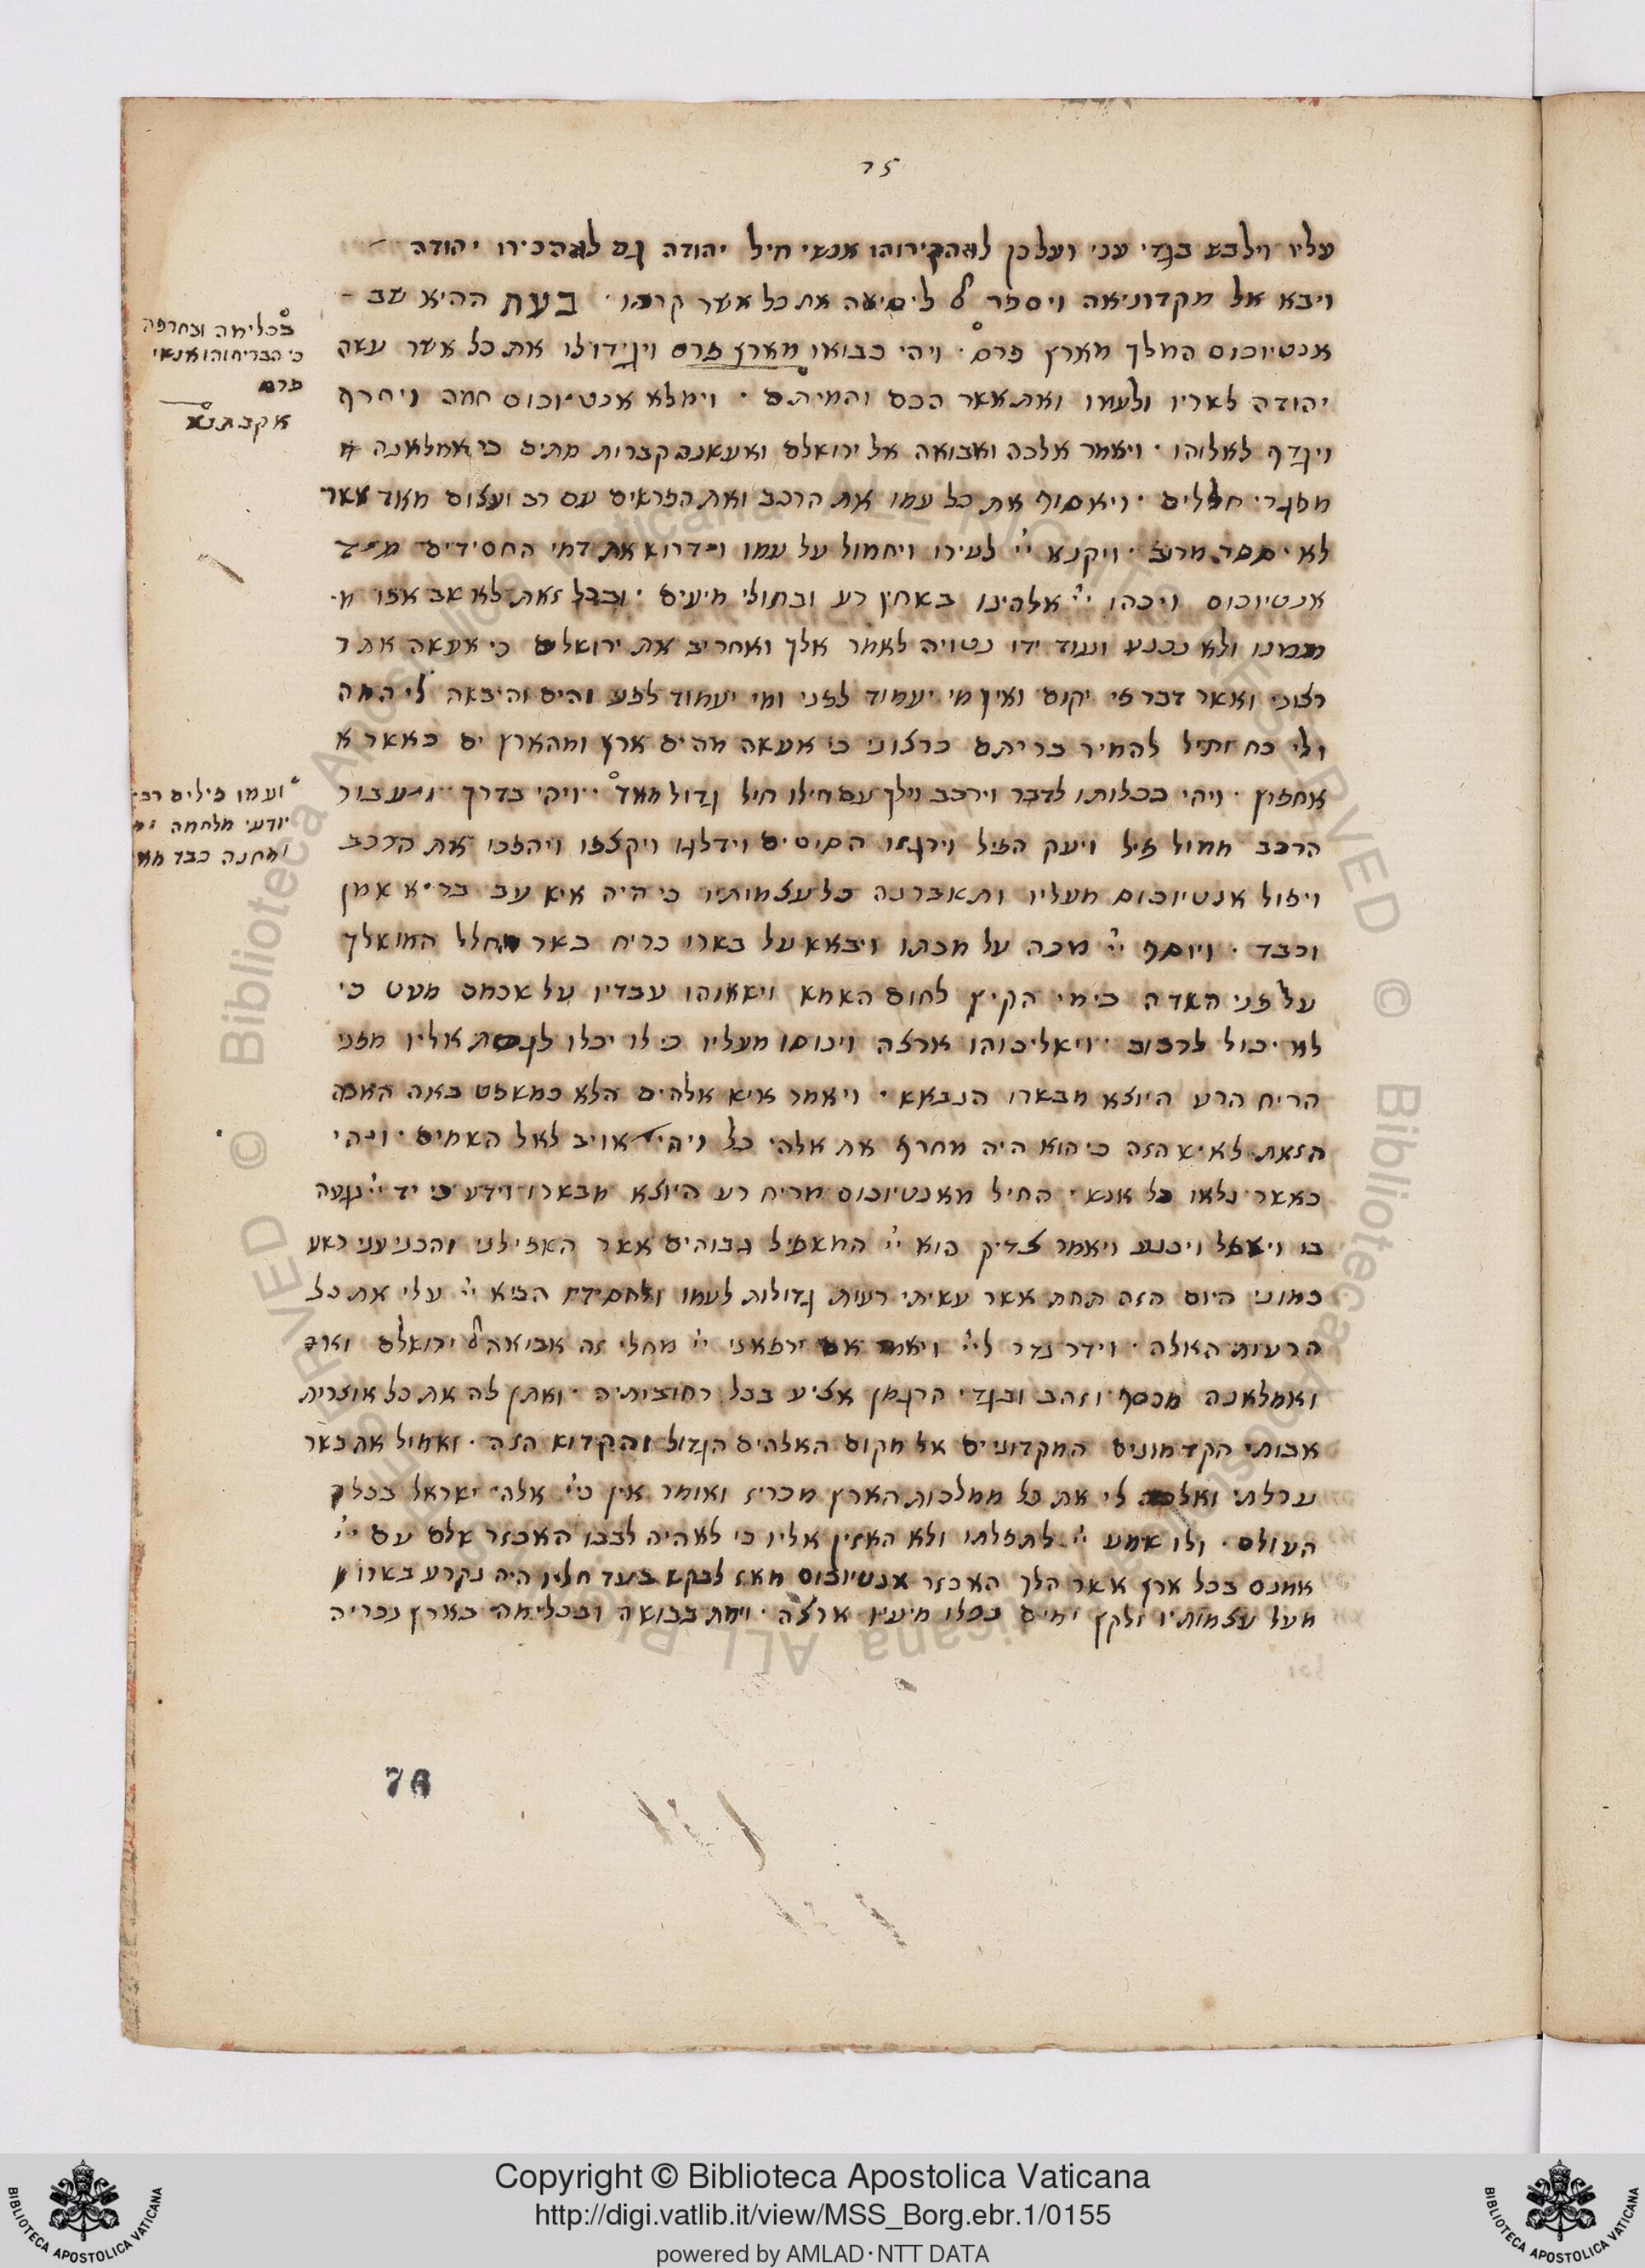 75
עליו וילבש בגדי עני ועל כן לא הכירוהו אנשי חיל יהודה גם לא הכירו יהודה
ויבא אל מקדוניאה ויספר ל ליסיאה את כל אשר קרהו · בעת ההיא שב
אנטיוכוס המלך מארץ פרס · ויהי בבואו מארץ פרס ויגידו לו את כל אשר עשה
יהודה לשריו ולעמו ואת אשר הכם והמיתם · וימלא אנטיוכוס חמה ויחרף
ויגדף לאלוהו · ויאמר אלכה ואבואה אל ירושלם ואעשנה קברות מתים כי אמלאנה
מפגרי חללים · ויאסוף את כל עמו את הרכב ואת הפרשים עם רב ועצום מאד אשר
לא יספר מרוב · ויקנא יי לעירו ויחמול על עמו וידרוש את דמי החסידים מיד
אנטיוכוס ויכהו יי אלהינו בשחין רע ובחולי מיעים · ובכל זאת לא שב אפו
ממנו ולא נכנע ועוד ידו נטויה לאמר אלך ואחריב את ירושלם כי אעשה את
רצוני ואשר דבר פי יקום ואין מי יעמוד לפני ומי יעמוד לפני והים והיבשה לי המה
ולי כח וחיל להמיר בריתם כרצוני כי אעשה מהים ארץ ומהארץ ים כאשר א
אחפוץ · ויהי ככלותו לדבר וירכב וילך עם חילו חיל גדול מאד · ויהי בדרך ויעבור
הרכב ממול פיל ויעק הפיל וירגזו הסוסים וידלגו ויקצפו ויהפכו את הרכב
ויפול אנטיוכוס מעליו ותשברנה כל עצמותיו כי היה איש עב בריא שמן
וכבד · ויוסף יי מכה על מכתו ויבאש על בשרו כריח בשר חלל המושלך
על פני השדה בימי הקיץ לחום השמש וישאוהו עבדיו על שכמם מעט כי
לא יכול לרכוב · וישליכוהו ארצה וינוסו מעליו כי לו יכלו לגשת אליו מפני
הריח הרע היוצא מבשרו הנבאש · ויאמר איש אלהים הלא כמשפט באה המכה
הזאת לאיש הזה כי הוא היה מחרף את אלהי כל ויהי אויב לאל השמים · ויהי
כאשר נלאו כל אנשי החיל מאנטיוכוס מריח רע היוצא מבשרו וידע כי יד יי נגעה
בו וישפל ויכנע ויאמר צדיק הוא יי המשפיל גבוהים אשר השפילני והכניעני רשע
כמוני היום הזה תחת אשר עשיתי רעות גדולות לעמו ולחסידיו הביא יי עלי את כל
הרעות האלה · וידר נדר ליי ויאמר אם ירפאני יי מחלי זה אביאה ל ירושלם
ואמלאנה מכסף וזהב ובגדי הרגמן אציע בכל רחובותיה · ואתן לה את כל אוצרות
אבותי הקדמונים המקדוניים אל מקום האלהים הגדול והקדוש הזה · ואמול את בשר
ערלתי ואלכה לי את כל ממלכות הארץ מכריז ואומר אין כיי אלהי ישראל בכל
העולם · ולו שמע יי לתפלתו ולא האזין אליו כי לא היה לבבו האכזר שלם עם יי
אמנם בכל ארץ אשר הלך האכזר אנטיוכוס מאז לבקש בעד חליו היה נקרע בשרו
מעל עצמותיו ולקץ ימים נפלו מיעיו ארצה · וימת בבושה ובכלימה בארץ נכריה
בכלימה ובחרפה
כי הבריחוהו אנשי
פרס
אקבתנא
ועמו פילים רבי
יודעי מלחמה
ומחנה כבד מא
76
Copyright © Biblioteca Apostolica Vaticana
http://digi.vatlib.it/view/MSS_Borg.ebr.1/0155
powered by AMLAD·NTT DATA